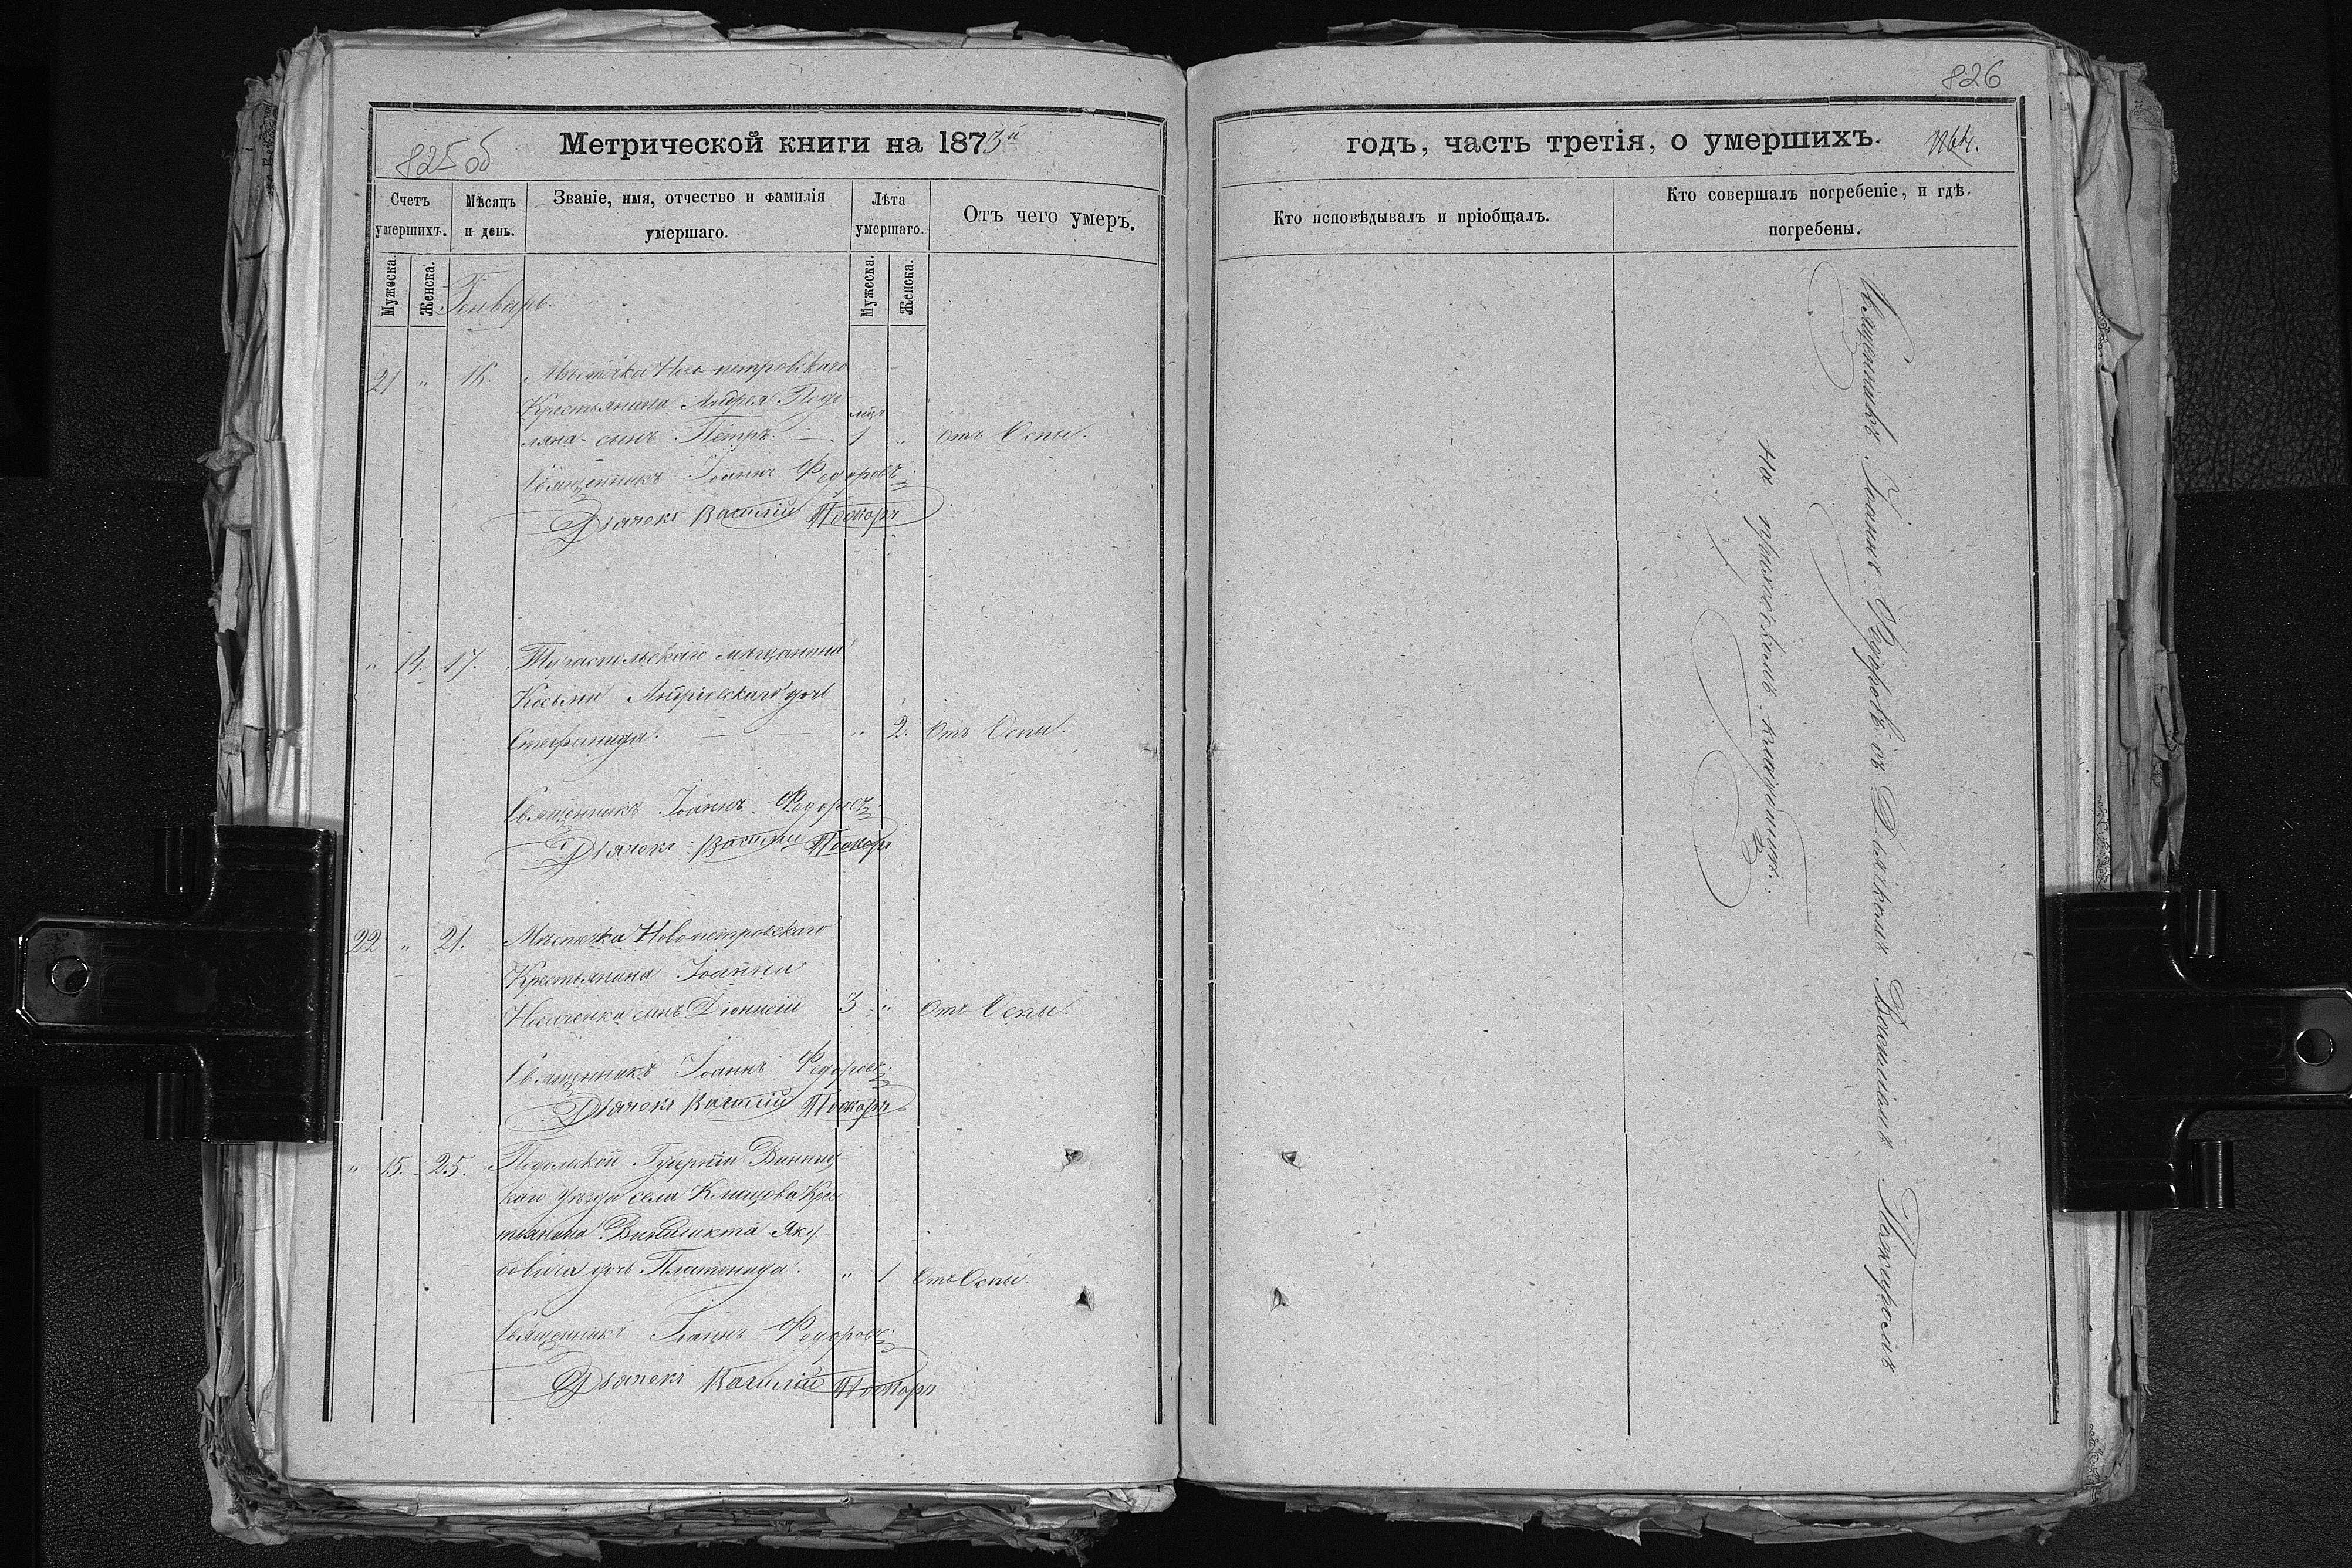 825 об
Метрической книги на 1873й
Счетъ умершихъ.
Мужеска.
Женска.
Мѣсяцъ и день.
Званіе, имя, отчество и фамилія умершаго.
Лѣта умершаго.
Мужеска.
Женска.
Отъ чего умеръ.
Генварь.
21 " 16. Мѣстечка Ново-петровскаго
Крестьянина Андрея Подо-
ляна - сынъ Петръ. — 1 " Отъ Оспы.
Священникъ Іоаннъ Федоровъ
Дьячекъ Василій
" 14. 17. Тираспольскаго мѣщанина
Косьмы Андріевскаго дочь
Стефанида. — — " 2. Отъ Оспы.
Священникъ Іоаннъ Федоровъ
Дьячекъ Василій
22 " 21. Мѣстечка Новопетровскаго
Крестьянина Іоанна
сынъ Діонисій 3 " Отъ Оспы.
Священникъ Іоаннъ Федоровъ
Дьячекъ Василій
" 15. 25. Подольской Губерніи Винниц-
каго уѣзда села Крес-
тьянина Яку-
бовича дочь . " 1 Отъ Оспы.
Священникъ Іоаннъ Федоровъ
Дьячекъ Василій
826
годъ, часть третія, о умершихъ.
Кто исповѣдывалъ и пріобщалъ.
Кто совершалъ погребеніе, и гдѣ погребены.
Священникъ Іоаннъ Федоровъ съ Дьячкомъ Василіемъ
На приходскомъ кладбищѣ.